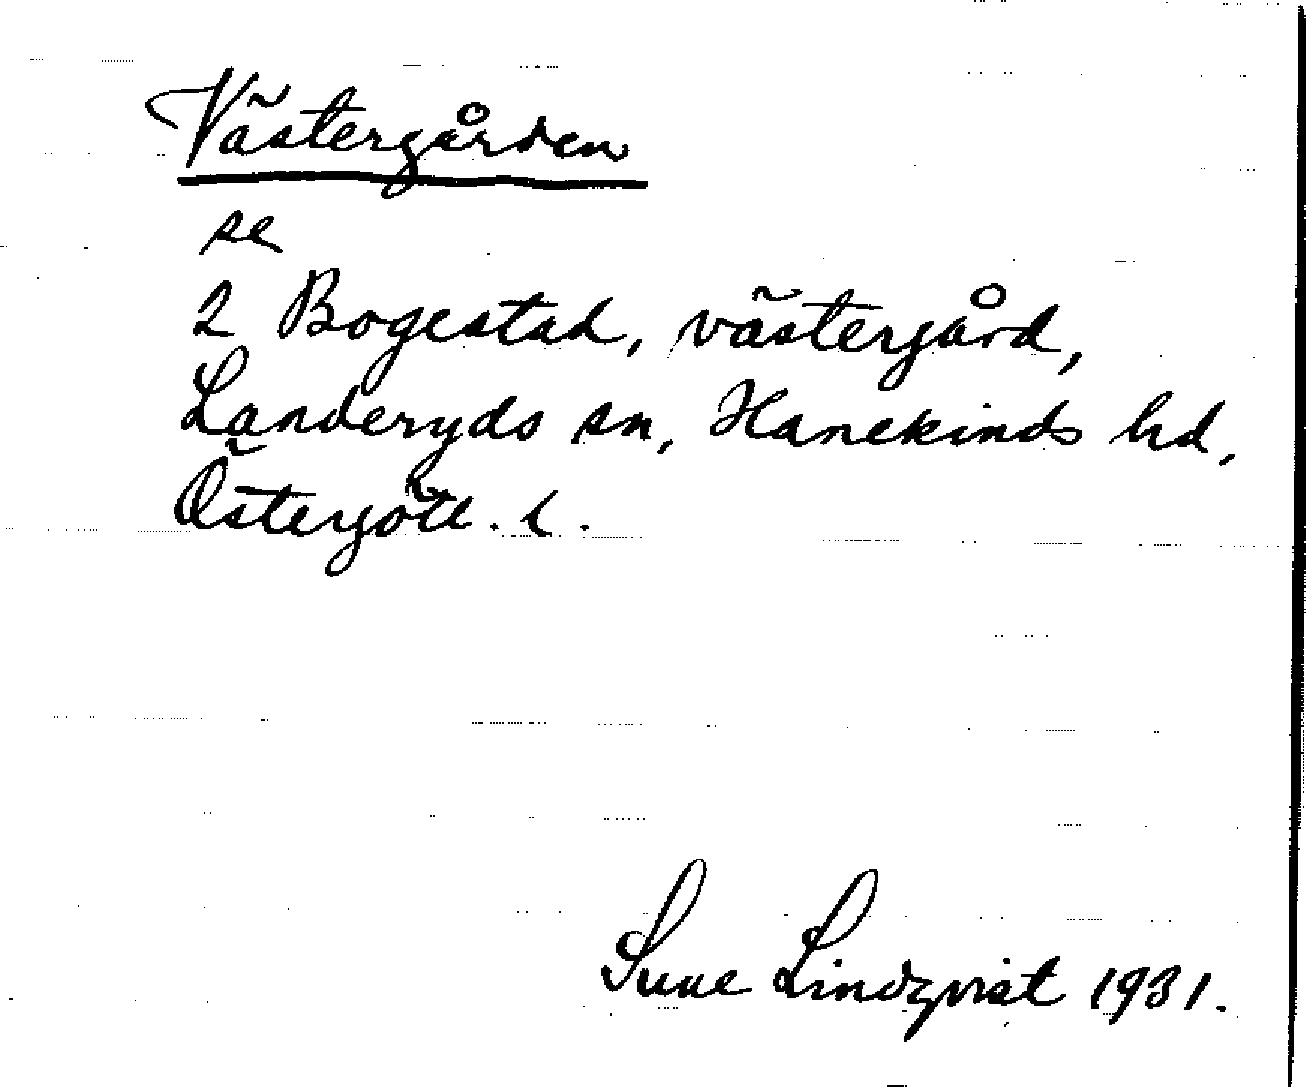 Västergården
se
2 Bogestad, västergård,
Landeryds sn, Hanekinds hd,
Östergötl. l.
Sune Lindqvist 1931.